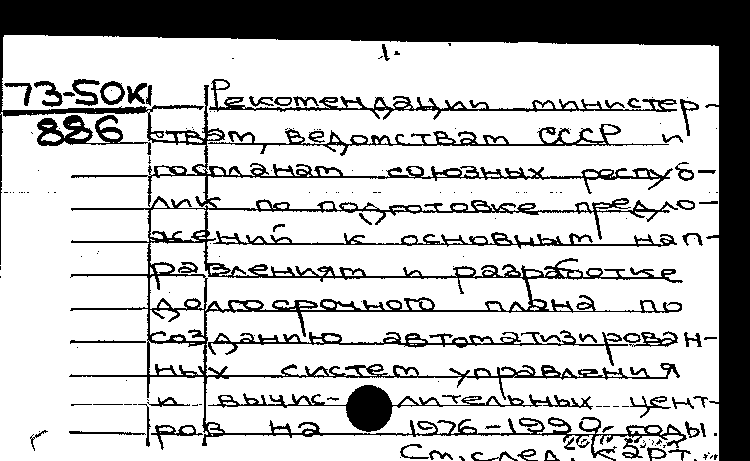 1.
73-50К Рекомендации министер-
886 ствам, ведомствам СССР и
госпланам союзных респуб-
лик по подготовке предло-
жений к основным нап-
равлениям и разработке
долгосрочного плана по
созданию автоматизирован-
ных систем управления
и вычис- лительных цент-
ров на 1976-1990 годы.
См. след. карт.